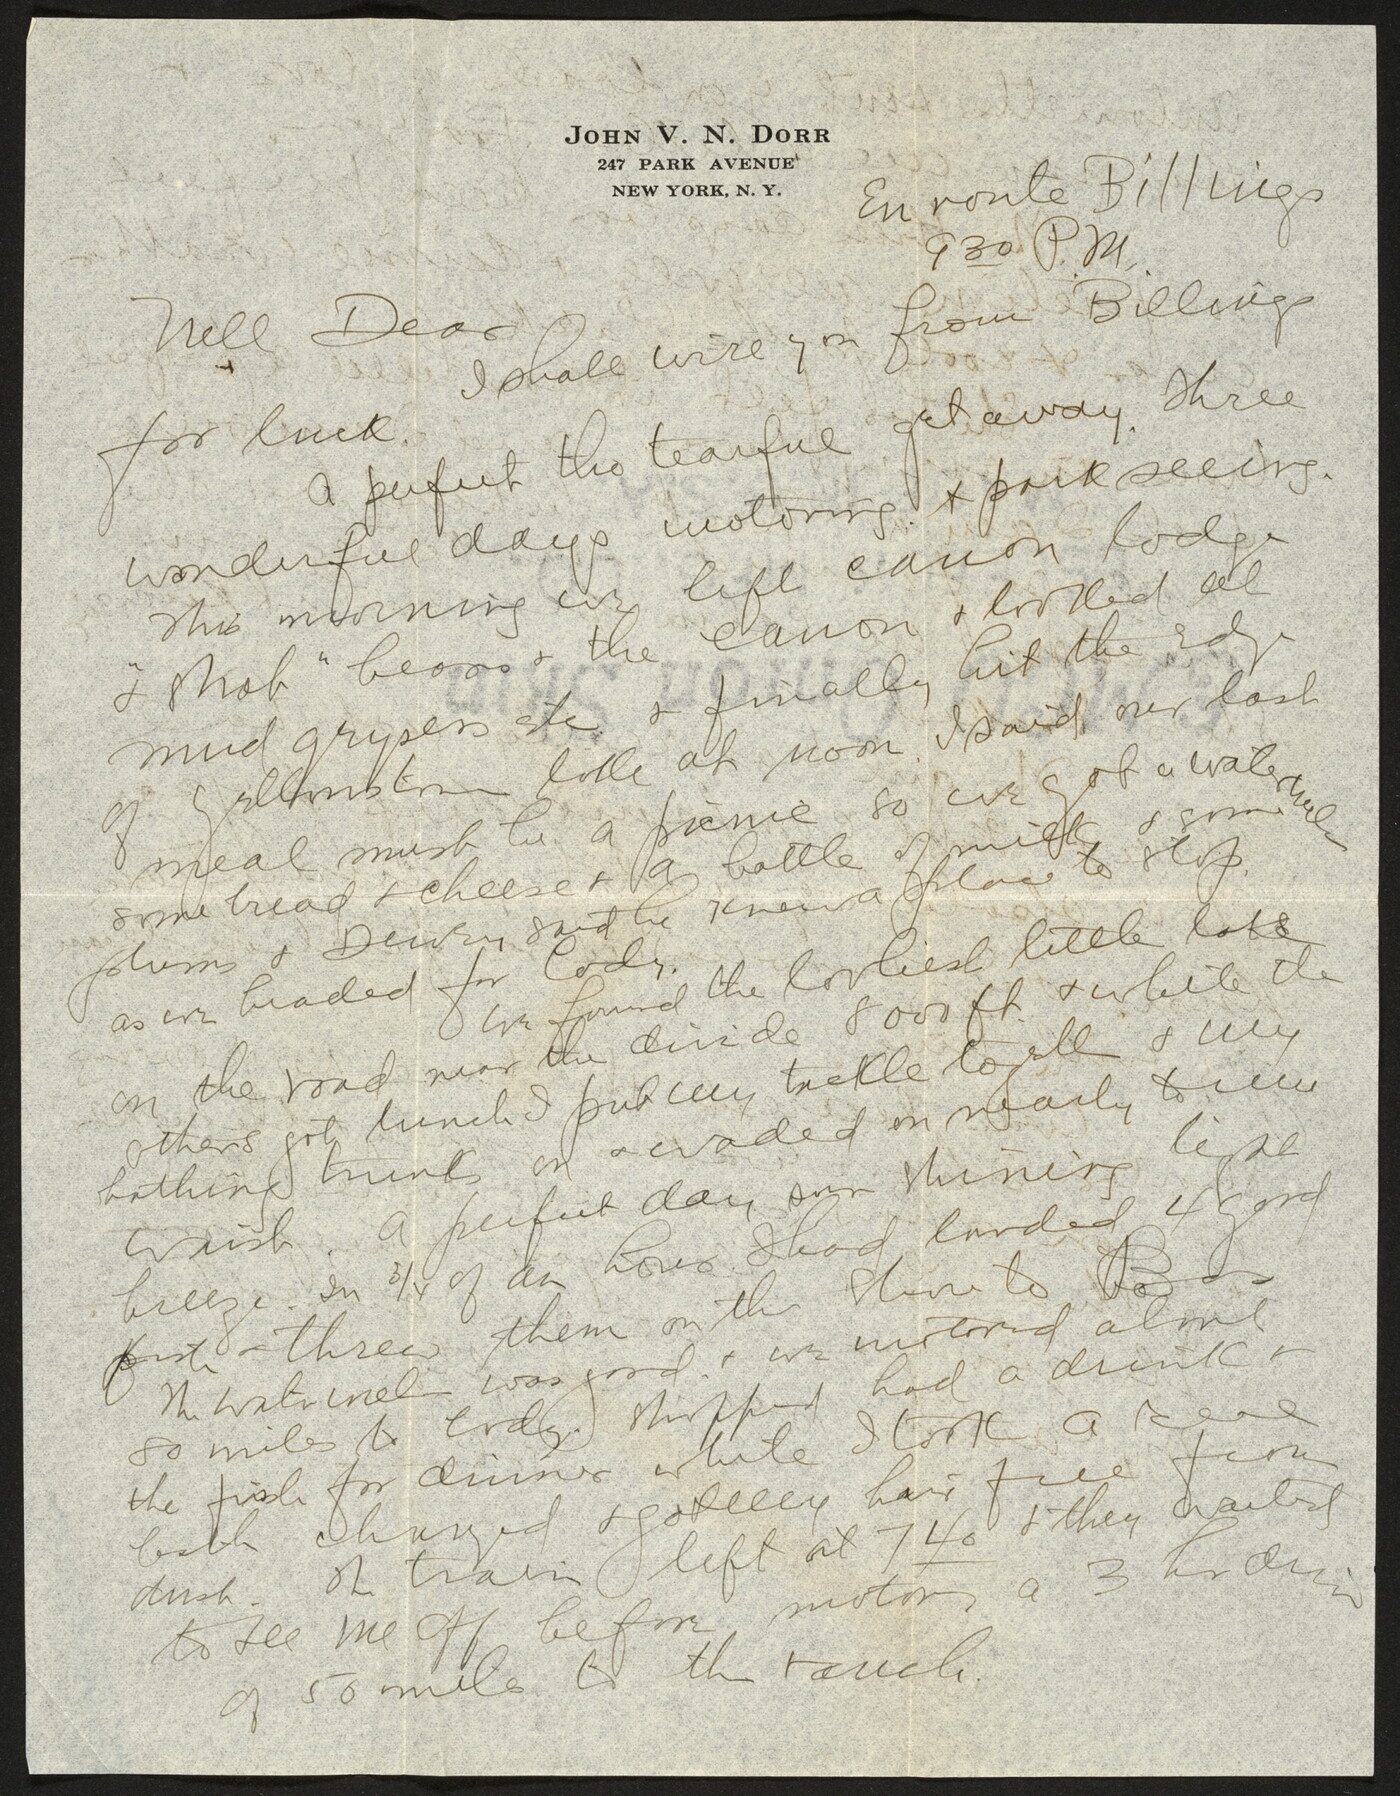 JOHN V. N. DORR
247 PARK AVENUE
NEW YORK, N. Y.
En route Billings
9 30 P.M.
Nell Dear
I shall wire you from Billings
for luck.
A perfect tho tearful get away. Three
wonderful days motoring & park seeing.
This morning we left canon lodge
& "shot" bears & the canon & looked at
mud grysers etc. & finally hit the edge
of Yellowstone lake at noon. I said our last
meal must be a picnic so we got a watermelon
some bread & cheese & a bottle of milk & some
plums & Dewey said he knew a place to stop
as we headed for Cody.
We found the lovliest little lake
on the road near the divide 8000 ft. & while the
others got lunch I put my tackle togeth & my
bathing trunks on & waded in nearly to my
waist. A perfect day, sun shining light
breeze. In 3/4 of an hour I had landed 4 good
fish & threw them on the shore to
The watermel was good & we motored about
80 miles to Cody. Stopped had a drink &
the fish for dinner while I took a
bath changed & got my hair free from
dust. The train left at 7 40 & they waited
to see me off before motoring a 3 hr drive
of 50 miles to the ranch.